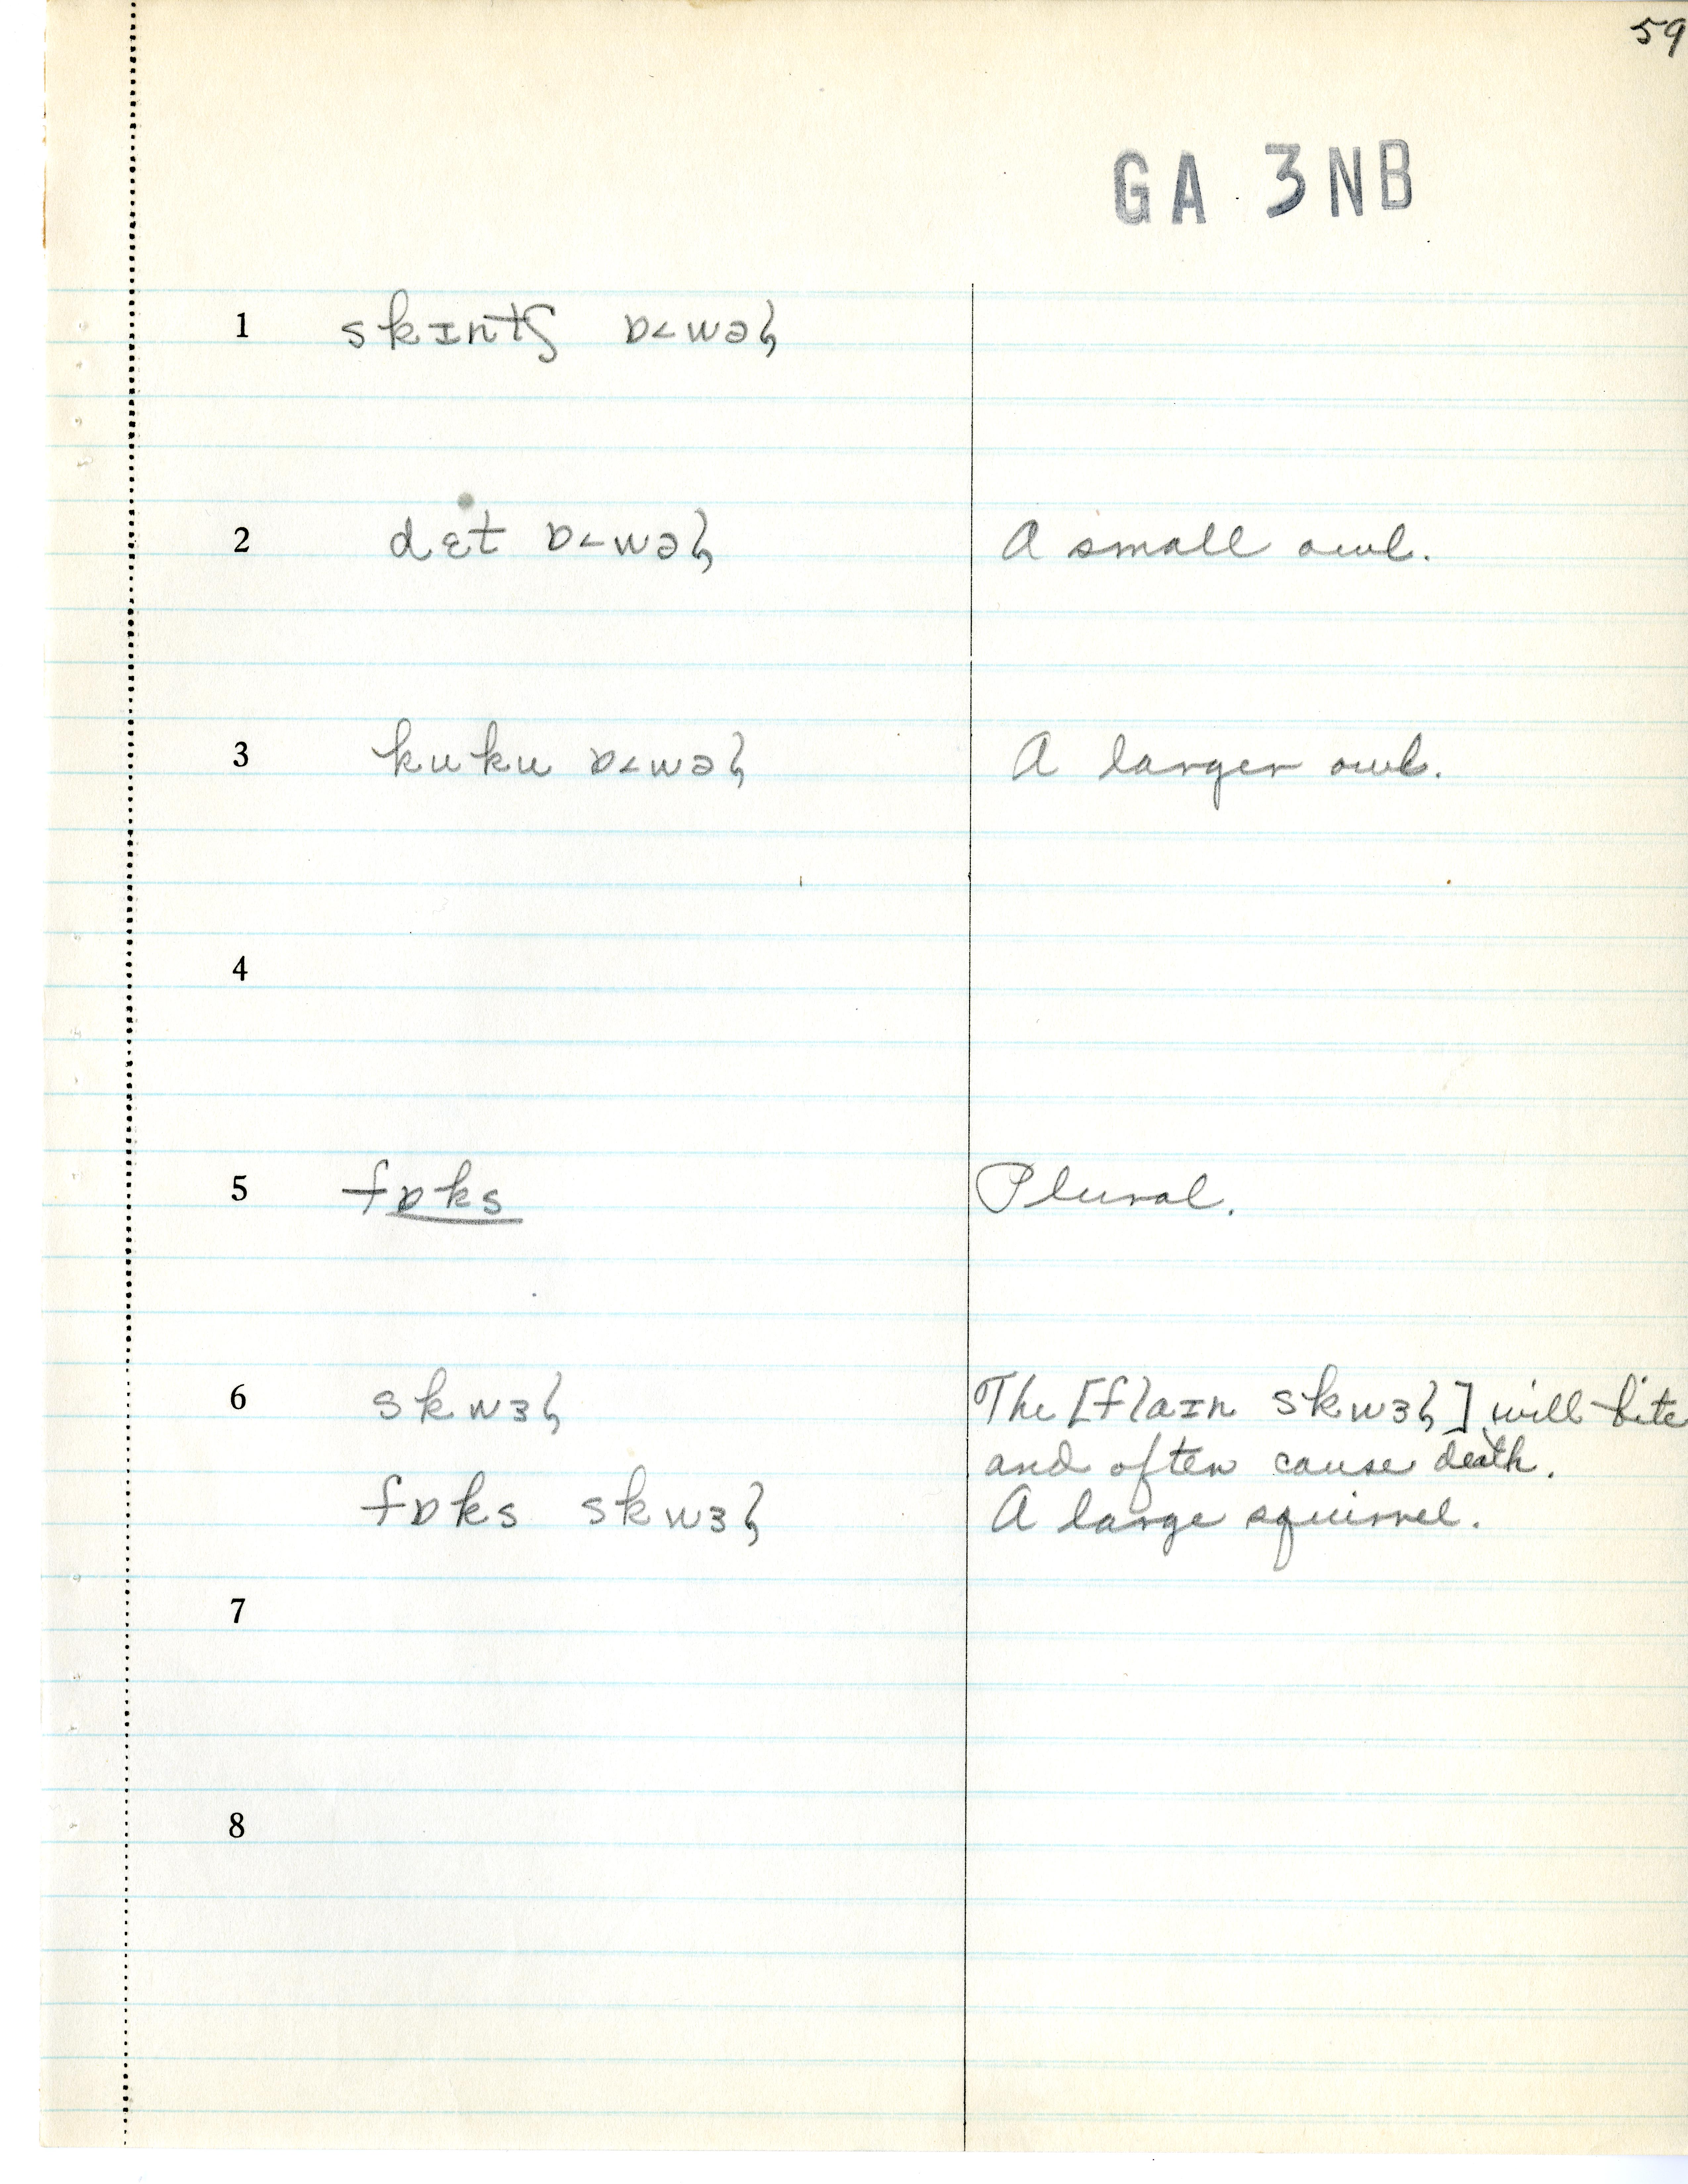 59
GA 3NB
1 skɪntʃ ɒ˂wəɮ
2 dɛt ɒ˂wəɮ A small owl.
3 kuku ɒ˂wəɮ A larger owl.
4
5 fɒks Plural.
6 skwɜɮ The [flaɪn skwɜɮ] will bite
and often cause death.
fɒks skwɜɮ A large squirrel.
7
8